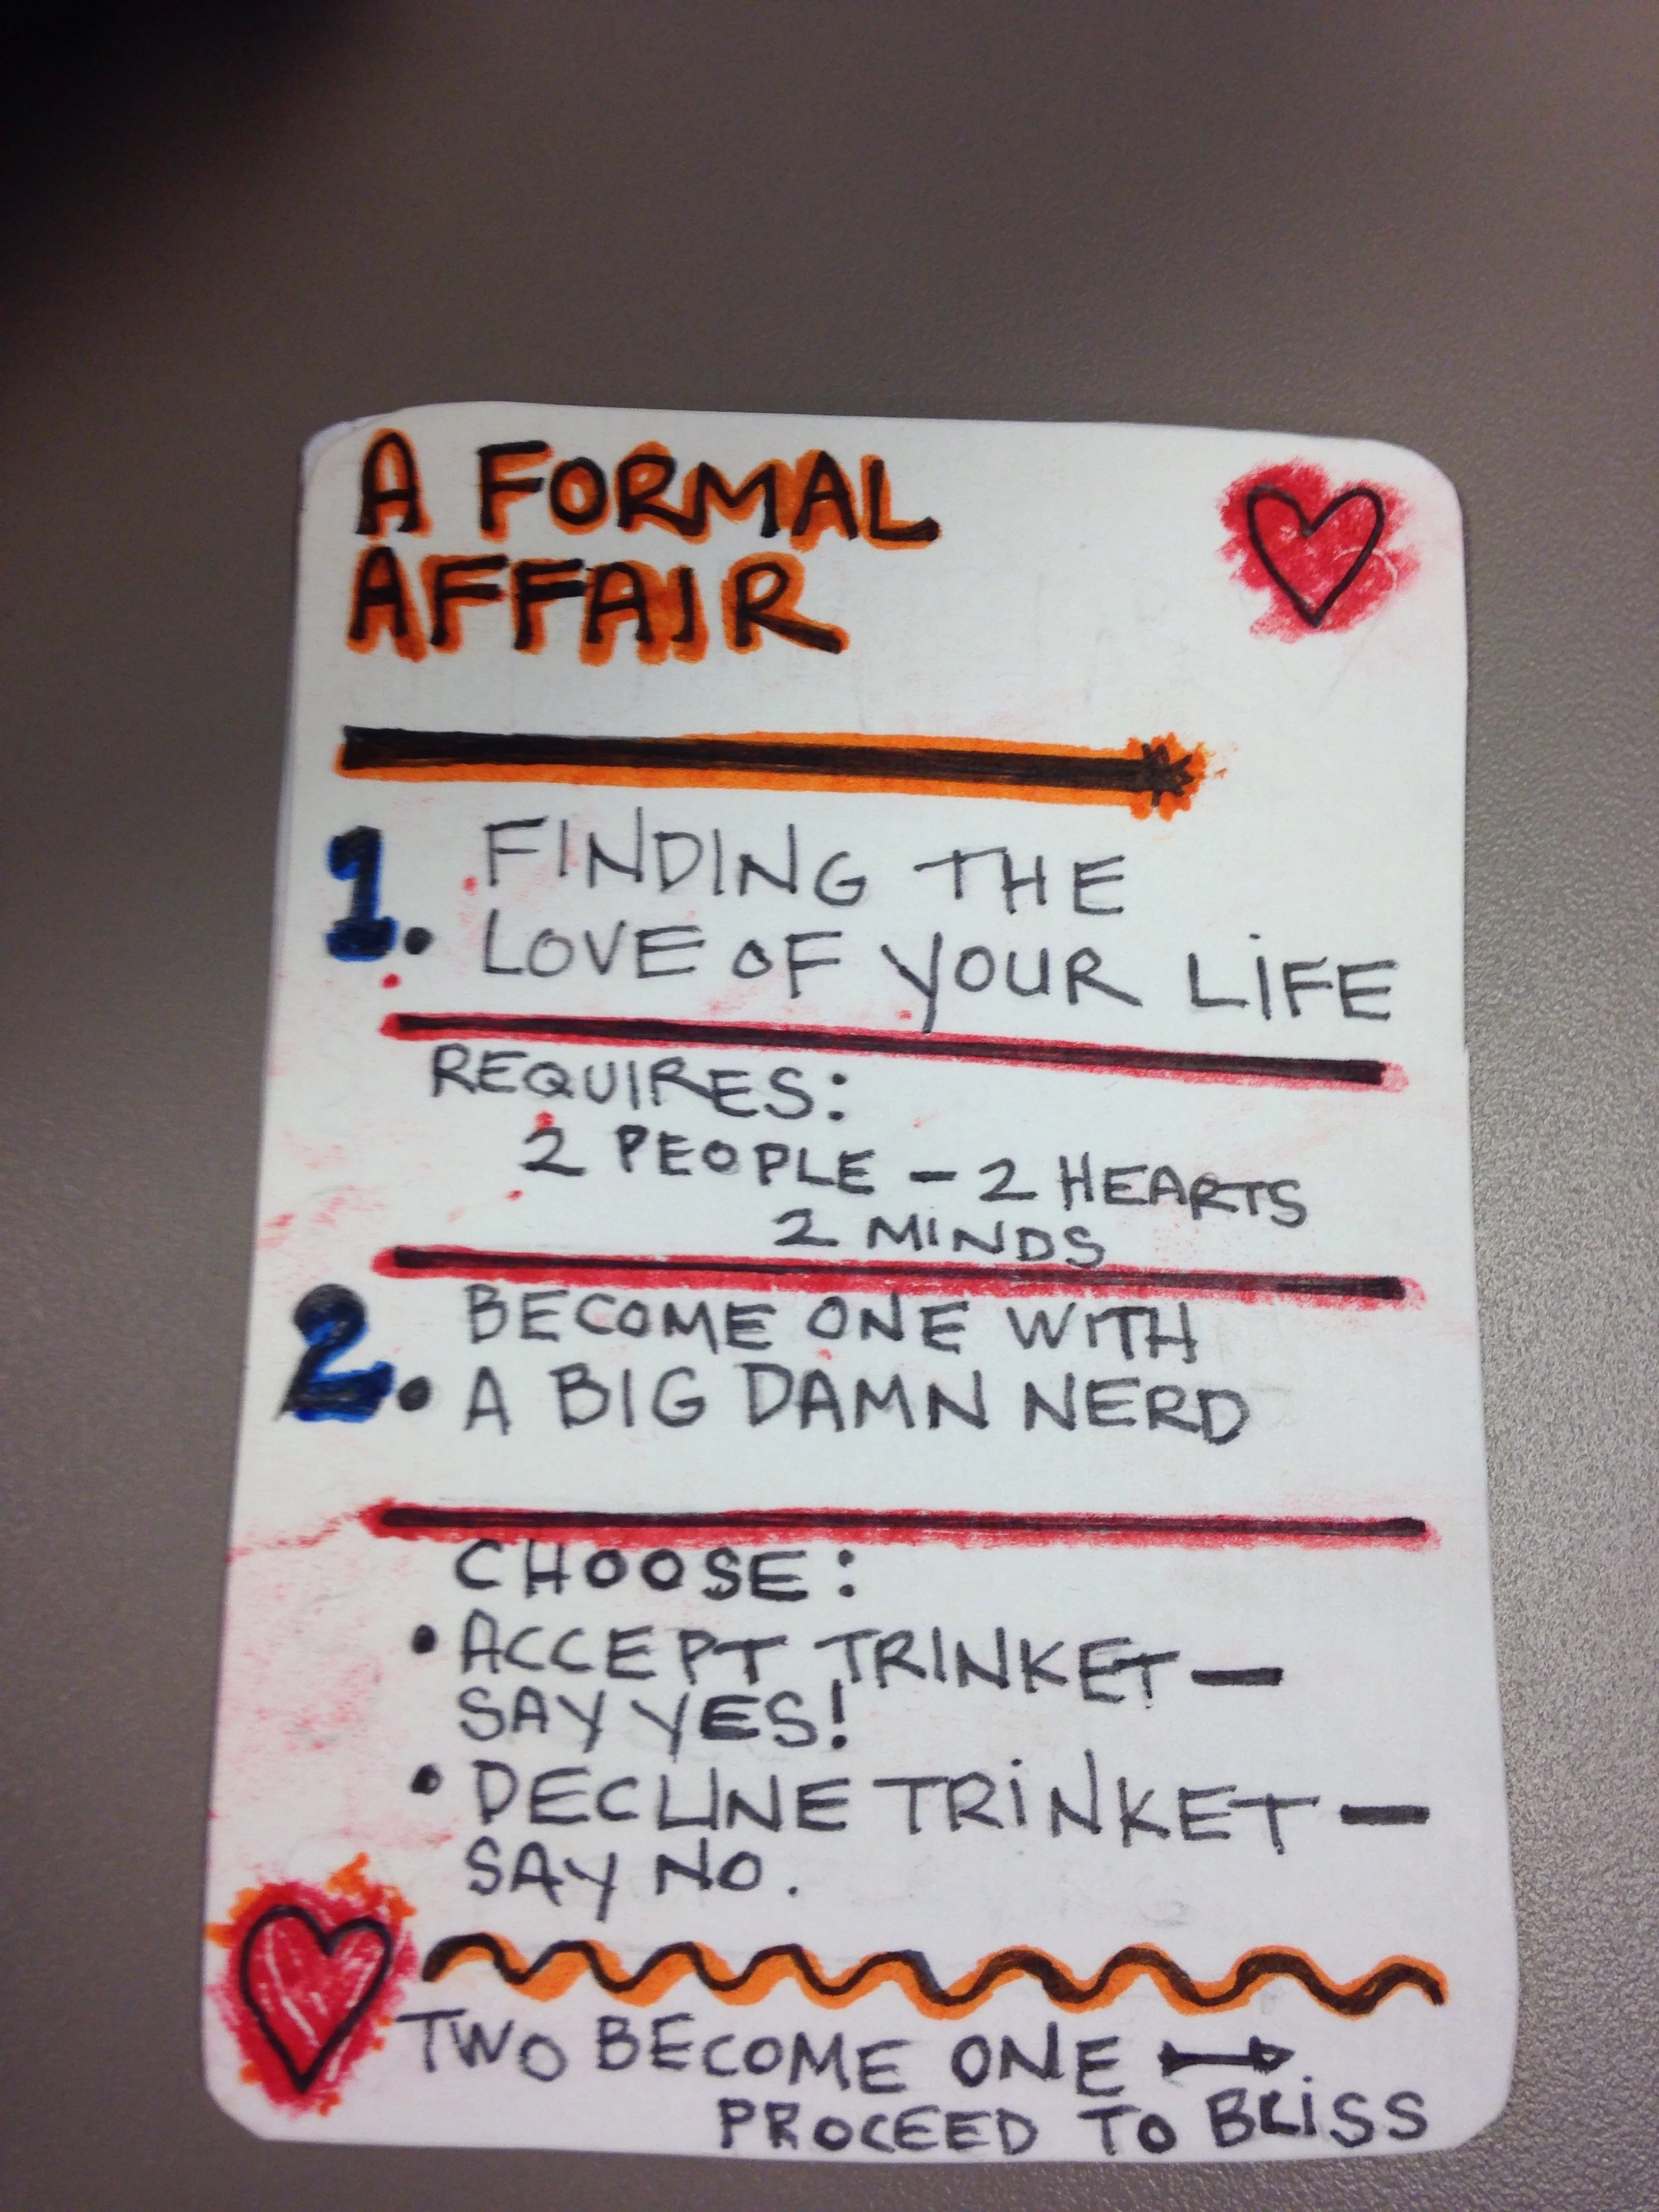 A FORMAL
AFFAIR
1. FINDING THE
LOVE OF YOUR LIFE
REQUIRES:
2 PEOPLE - 2 HEARTS
2 MINDS
2. BECOME ONE WITH
A BIG DAMN NERD
CHOOSE:
• ACCEPT TRINKET —
SAY YES!
• DECLINE TRINKET —
SAY NO.
TWO BECOME ONE →
PROCEED TO BLISS